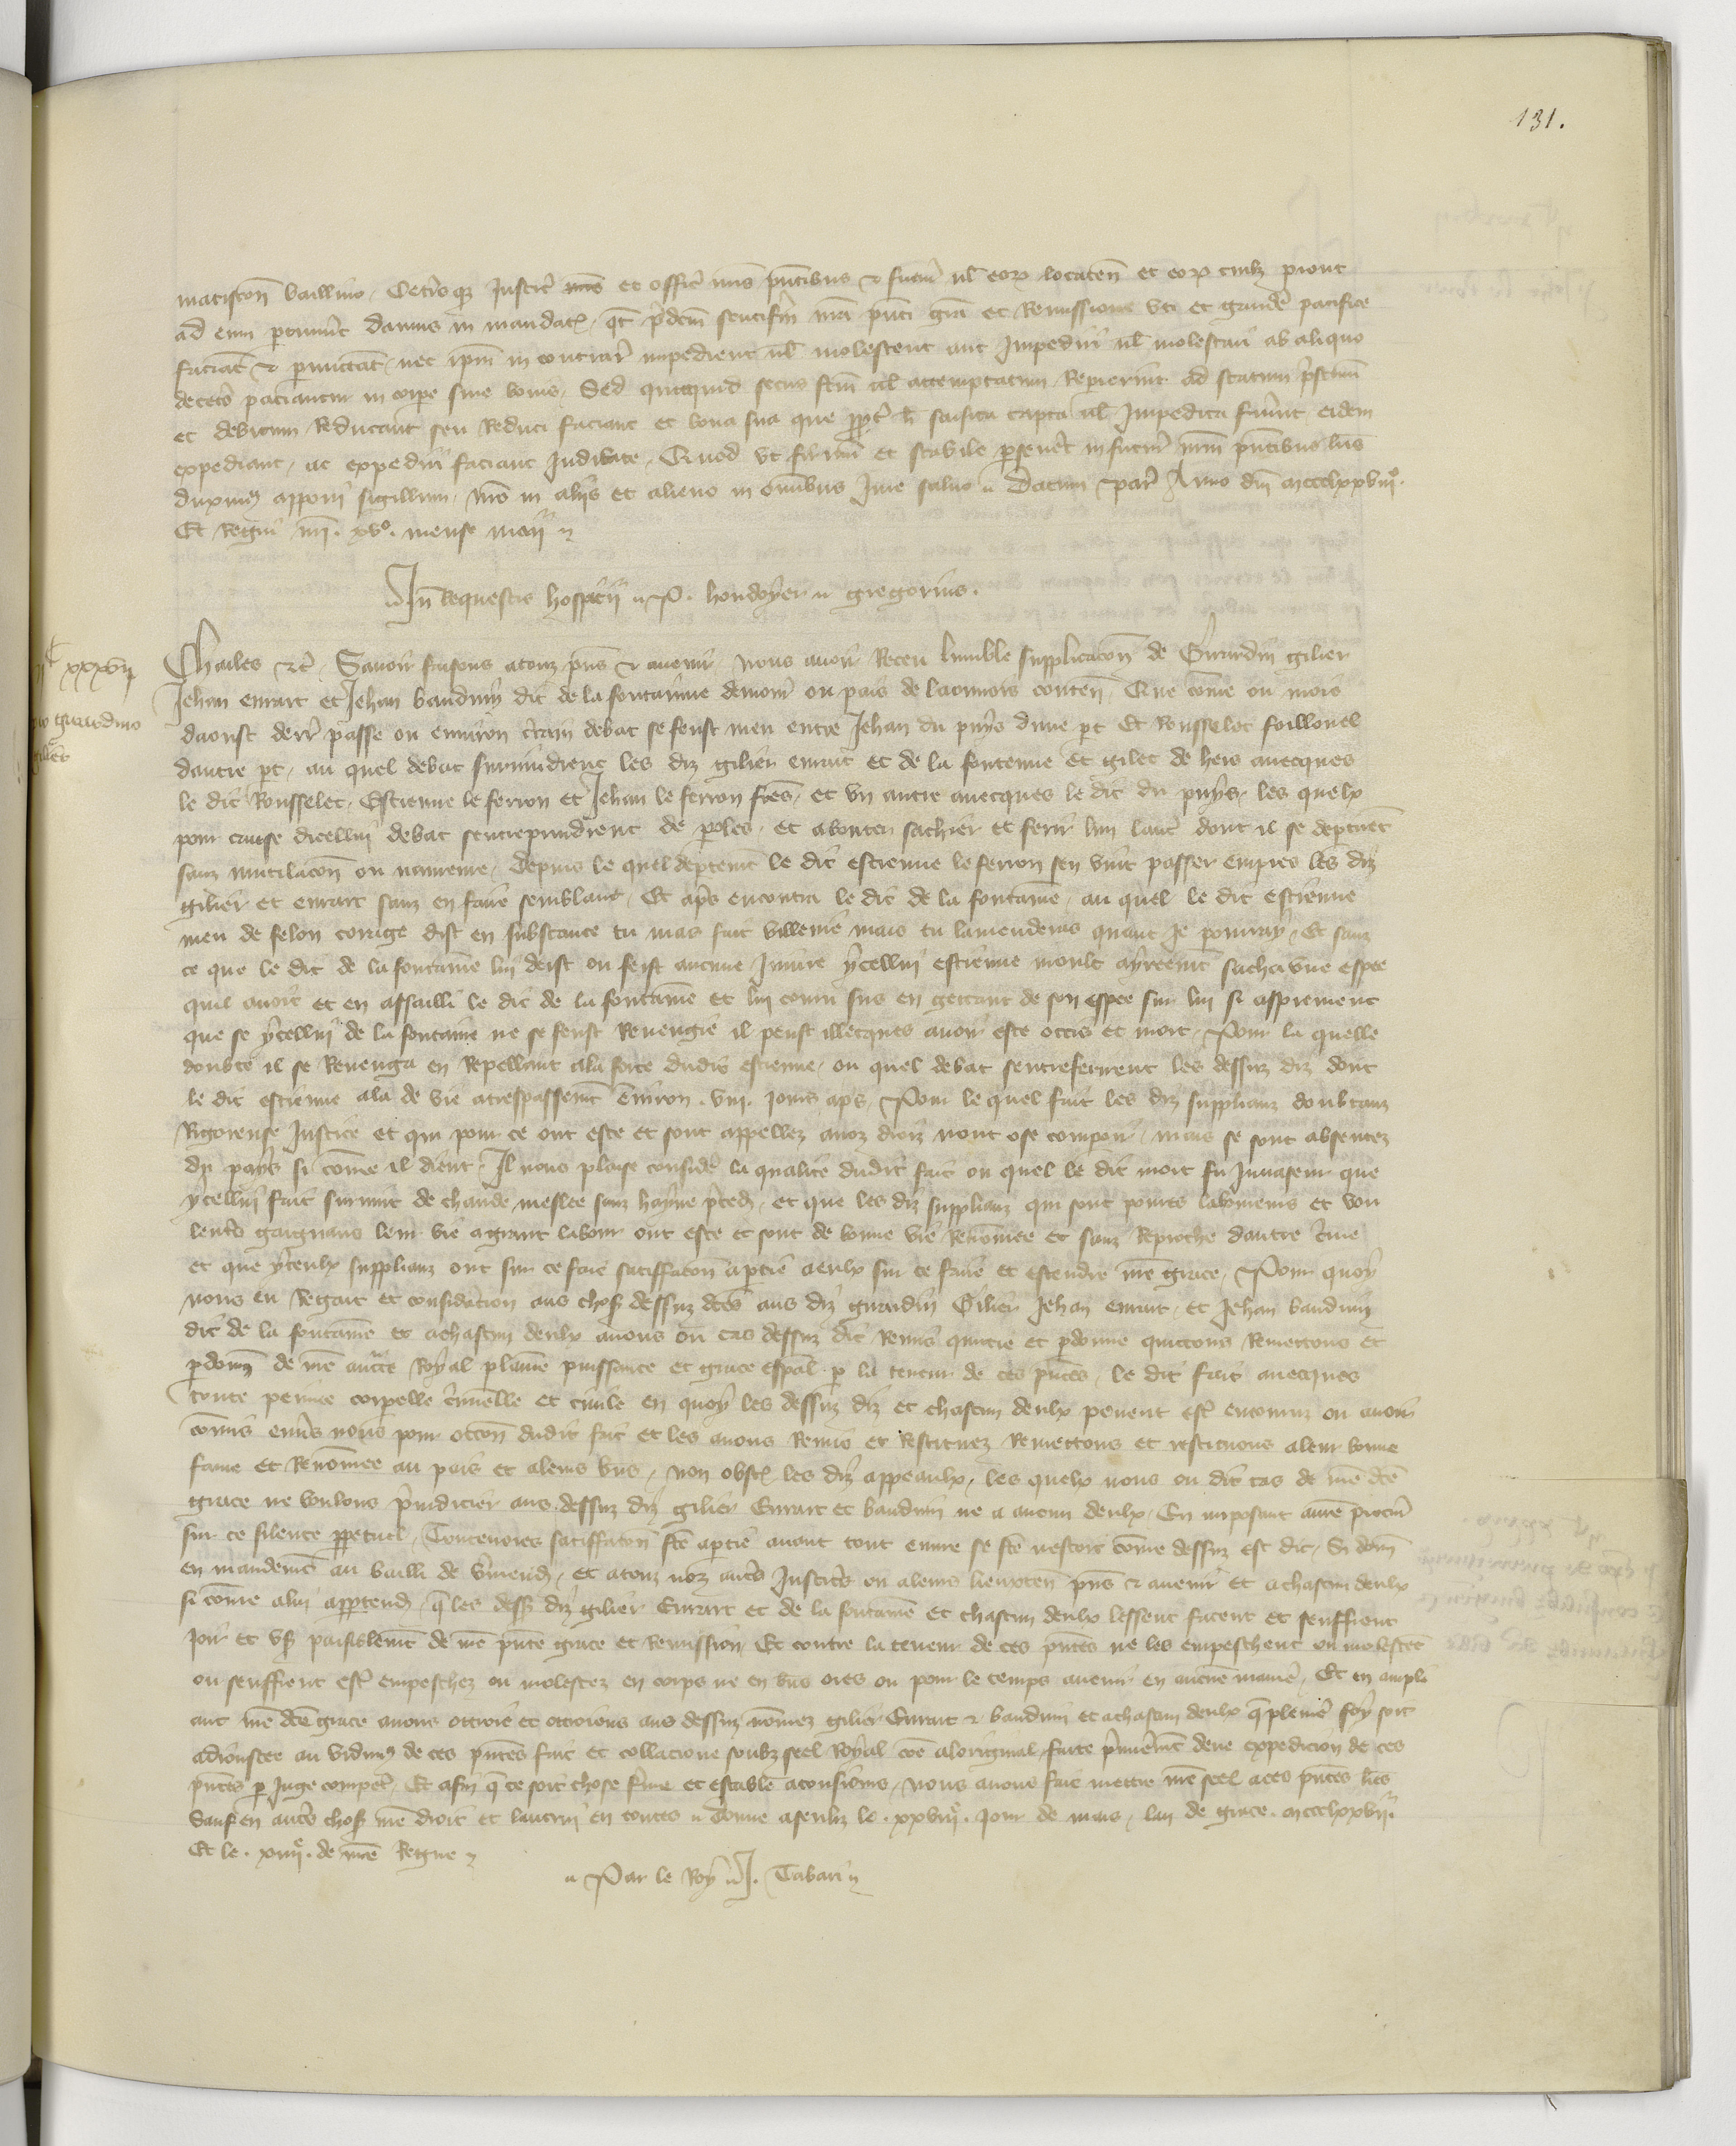 131.
matiscon baillivo, Ceterisque Justic nris et offic nris pntibus & futur vl eorum locaten et eorum cuilibet prout
ad eum pertinuerit damus in mandatis, qt predcm remissione uti et gaudere pacifice
faciat & permittat, nec ipm in contrar impediant vl molestent aut Impediri vl molestari ab aliquo
decetero paciantur in corpe sive bonis, Sed quicquid secus fcm vl attemptatum Repererint ad statum pristinum
et debitum Reducant seu Reduci faciant et bona sua que propt h saisita capta vl Impedita fuerint eidem
expediant, ac expediri faciant Indilate, Quod ut firmum et stabile perseveret in futur nrm pntibus lris
duximus apponi sigillum, nro in aliis et alieno in omnibus Jure salvo Datum par Anno dni mccclxxviii°.
Et Regni nri. xv°. mense maii
In Requestis hospicii P. houdoyer gregorius.
iic xxxvii
girardino
gilier
Charles &c, Savoir faisons atouz pns & avenir, nous avoir Receu lumble supplicacon de Girardin gilier
Jehan errart et Jehan bauduin dit de la fontainne demour ou pais de laonnois conten, Que come ou mois
daoust derr passe ou environ certain debat se feust meu entre Jehan du puys dune pt Et Rousselot foillouel
dautre pt, au quel debat survindrent les diz gilier errart et de la fontenne et gilet de hers avecques
le dit Rousselet, Estienne le ferron et Jehan le ferron fres, et un autre avecques le dit du puys, les quelx
pour cause dicellui debat sentreprindrent de poles, et a bouter sachier et ferir lun lautre dont il se deptirent
sanz mutilacon ou navreure, Depuis le quel deptement le dit estienne le ferron sen vint passer empres les diz
gilier et errart sanz en faire semblant, Et aprs encontra le dit de la fontaine, au quel le dit estienne
meu de felon corage dist en substance tu mas fait villenie mais tu lamenderas quant Je pourray, Et sanz
ce que le dit de la fontaine lui deist ou feist aucune Iniure ycellui estienne moult ayreement sacha une espee
quil avoit et en assailli le dit de la fontaine et lui couru sus en gettant de son espee sur lui si asprement
que se ycellui de la fontaine ne se feust Revengie il peust illecques avoir este occis et mort, Pour la quelle
doubte il se Revenga en Repellant ala force dudit estienne, ou quel debat sentreferirent les dessuz diz dont
le dit estienne ala de vie a trespassement environ .viii. Jours aps, Pour le quel fait les diz supplianz doubtanz
Rigoreuse Justice et qui pour ce ont este et sont appellez a noz droiz nont ose comparoir, mais se sont absentez
du pays si come il dient, Il nous plaise considere la qualite dudit fait ou quel le dit mort fu Invaseur que
ycellui fait survint de chaude meslee sanz hayne preced, et que les diz supplianz qui sont povres laboureurs et vou
lentrs gaignans leur vie a grant labour ont este et sont de bonne vie Renomee et sanz Reprouche dautre crime
et que yceulx supplianz ont sur ce faic satiffacon a partie a eulx sur ce faire et estendre nre grace, Pour quoy
nous eu Regart et consideracion aus choses dessuz dces aus diz girardin Gilier Jehan errart, et Jehan bauduin
dit de la fontaine et achascun deulx avons ou cas dessuz dit Remis quittie et pardonne quittons Remettons et
pardonns de nre auctte Royal plaine puissance et grace espal par la teneur de ces pntes, le dit fait avecques
toute peinne corpelle criminelle et civile en quoy les dessuz diz et chascun deulx peuent estre encouruz ou avoir
comis envers nous pour occon dudit fait et les avons Remis et Restituez Remettons et restituons a leur bonne
fame et Renomee au pais et a leurs bns, Non obst les diz appeaulx, les quelx nous ou dit cas de nre dce
grace ne voulons preiudicier aus dessuz diz gilier Errart et baudin ne a aucun deulx, En imposant a nre procur
sur ce silence perpetuel, Toutevoies satiffacon fte a partie avant tout euvre se fte nestoit come dessuz est dit, Si donns
en mandement au bailli de vermend, et atouz noz autrs Justicrs ou a leurs lieuxten pns & avenir et achascun deulx
si come alui appartend, q les dess diz gilier Errart et de la fontaine et chascun deulx lessent facent et seuffrent
Joir et user paisiblement de nre pnte grace et Remission, Et contre la teneur de ces pntes ne les empeschent ou molestet
ou seuffrent estre empeschez ou molestez en corps ne en bns ores ou pour le temps avenir en aucune maniere, Et en ampli
ant nre dce grace avons ottroie et ottroions aus dessuz nomez gilier Errart & baudin et achascun deulx q pleniere foy soit
adioustee au vidimus de ces pntes fait et collacione soubz seel Royal coe aloriginal, faite primierement deue expedicion de ces
pntes par Juge compet, Et afin q ce soit chose ferme et estable atousiours, nous avons fait mettre nre seel a ces pntes lres
Sauf en autrs choses nre droit et lautrui en toutes Donne asenliz le .xxviii°. Jour de mars, lan de grace. mccclxxvii.
Et le .xiiii°. de nre Regne
Par le Roy J. Tabari